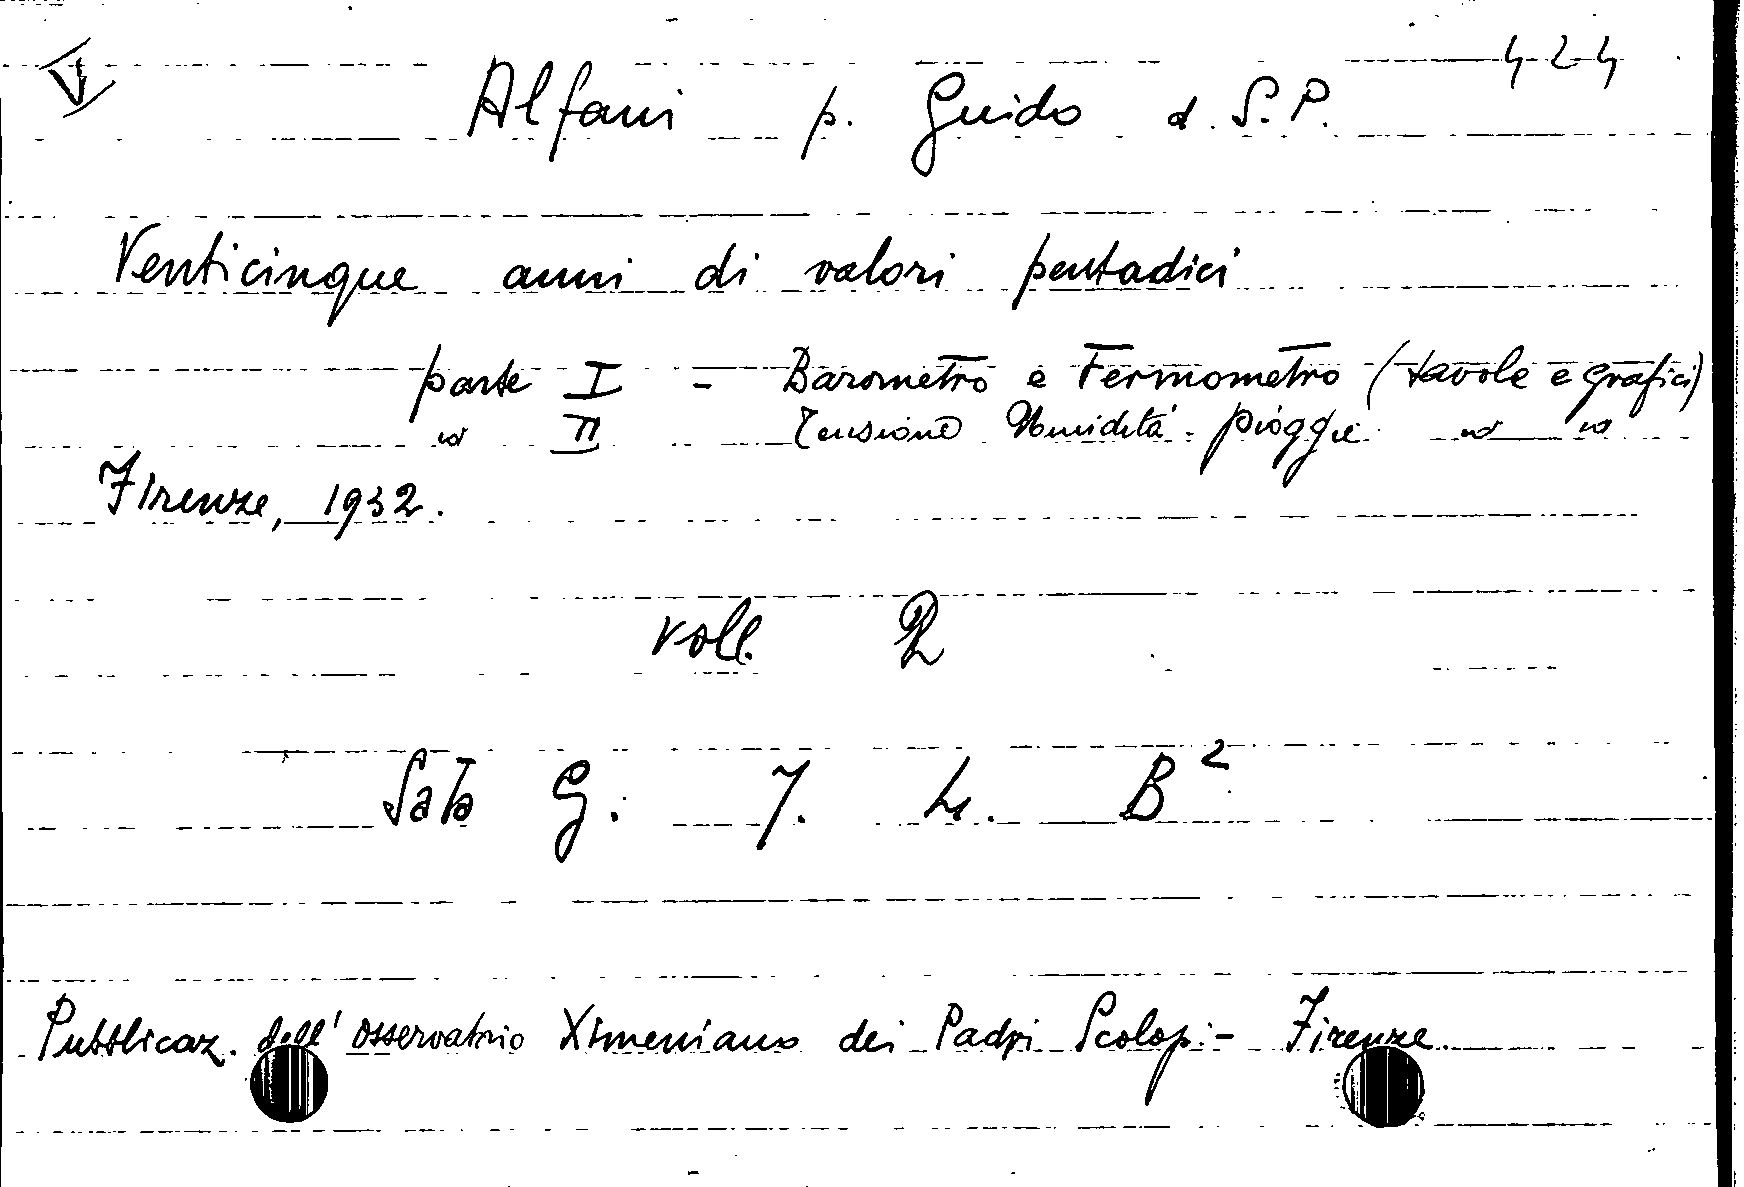 V 424
Alfani p. Guido d. S.P.
Venticinque anni di valori pentadici
parte I - Barometro e Termometro (tavole e grafici)
" II Tensione Umidità. pioggie " "
Firenze, 1932.
voll. 2
Sala G. 7. 4. B²
Pubblicaz. dell' Osservatorio Ximeniano dei Padri Scolopi - Firenze.